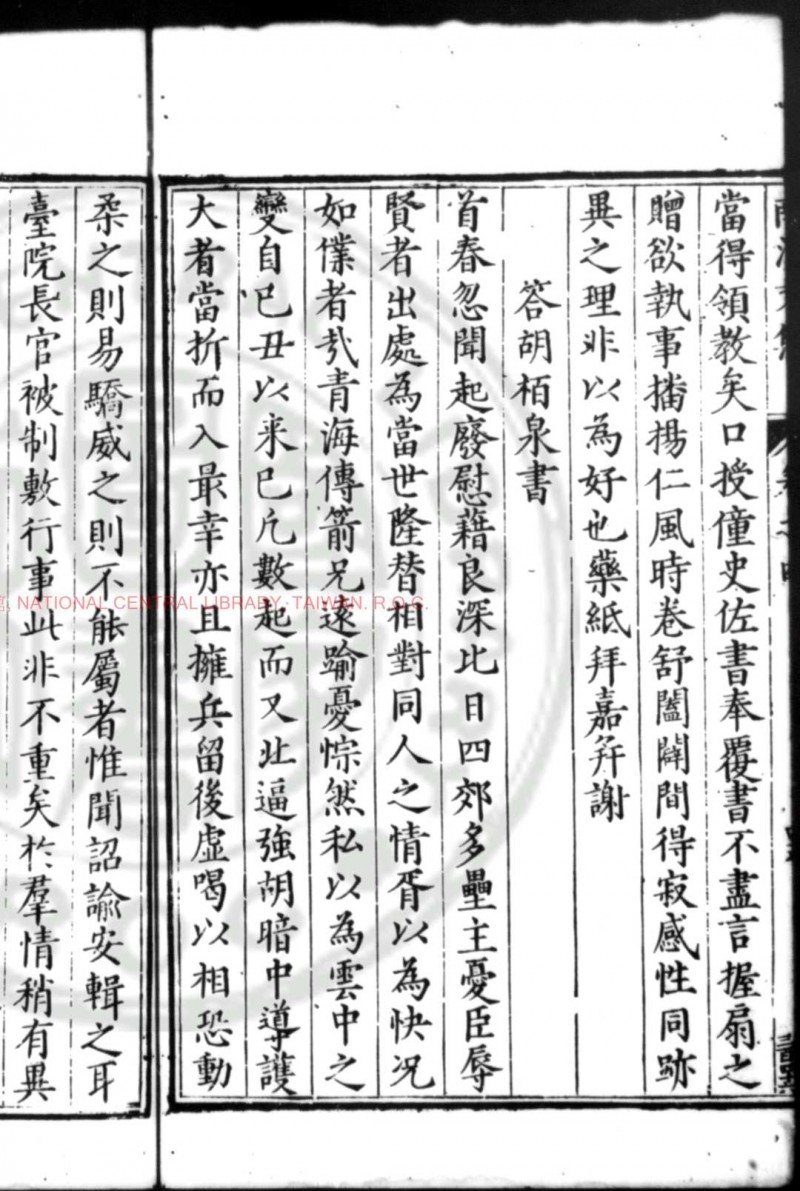 當得領教矣口授僮史佐書奉覆書不盡言握扇之
贈欲執事播揚仁風時卷舒闔闢間得寂感性同跡
異之理非以為好也藥紙拜嘉并謝
答胡栢泉書
首春忽聞起廢慰藉良深比日四郊多壘主憂臣辱
賢者出處為當世隆替相對同人之情胥以為快况
如僕者哉青海傳箭兄遠踰憂悰然私以為雲中之
變自巳丑以来巳凢數起而又北逼強胡暗中導護
大者當折而入最幸亦且擁兵留後虛喝以相恐動
柔之則易驕威之則不能屬者惟聞詔諭安輯之耳
臺院長官被制敷行事此非不重矣扵羣情稍有異
NATIONAL CENTRAL LIBRARY, TAIWAN, R.O.C.